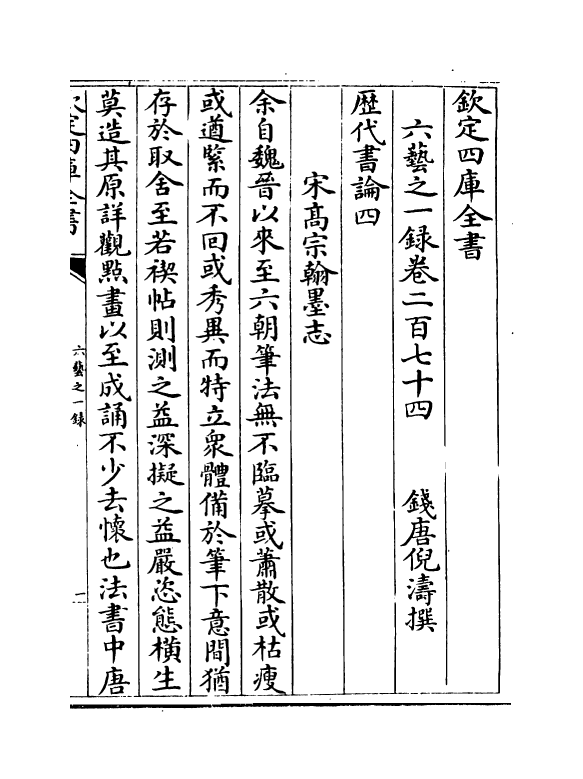 欽定四庫全書
六藝之一錄卷二百七十四　錢唐倪濤撰
歷代書論四
宋髙宗翰墨志
余自魏晉以來至六朝筆法無不臨摹或蕭散或枯瘦
或遒緊而不回或秀異而特立衆體備於筆下意間猶
存於取舍至若禊帖則測之益深擬之益嚴恣態橫生
莫造其原詳觀點畫以至成誦不少去懷也法書中唐
欽定四庫全書
六藝之一錄
一